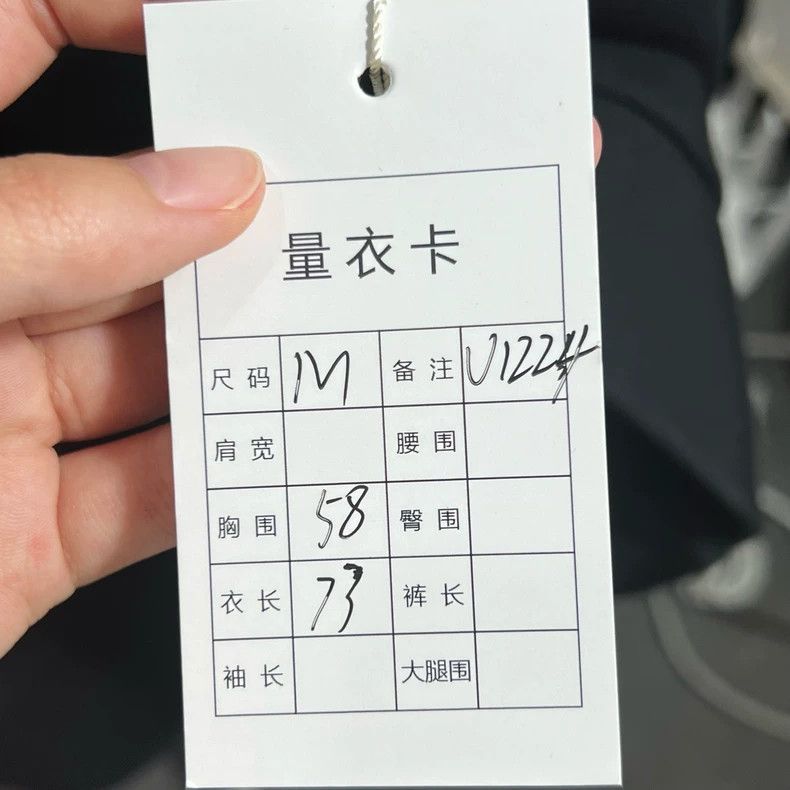 量衣卡
尺码 M 备注 U1224
肩宽 腰围
胸围 58 臀围
衣长 73 裤长
袖长 大腿围